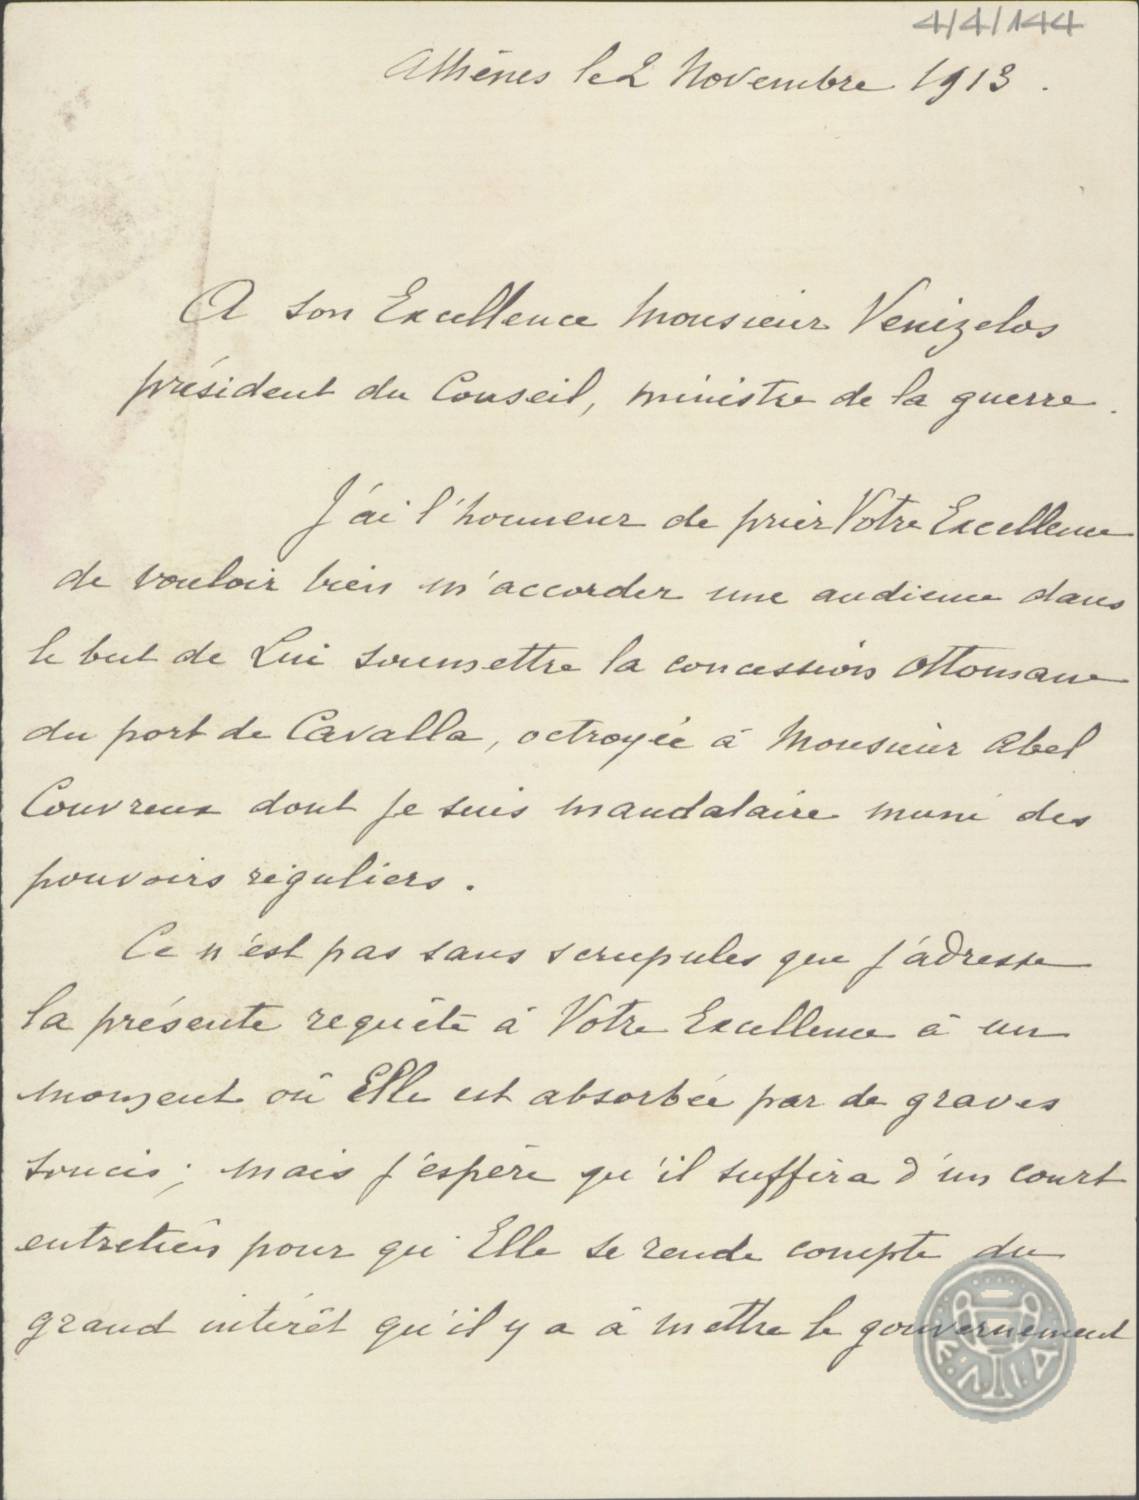 4/4/144
Athènes le 2 Novembre 1913.
A son Excellence Monsieur Venizelos
président du Conseil, ministre de la guerre.
J'ai l'honneur de prier Votre Excellence
de vouloir bien m'accorder une audience dans
le but de Lui soumettre la concession Ottomane
du port de Cavalla, octroyée à Monsieur Abel
Couvreux dont je suis mandataire muni des
pouvoirs réguliers.
Ce n'est pas sans scrupules que j'adresse
la présente requête à Votre Excellence à un
moment où Elle est absorbée par de graves
soucis; mais j'espère qu'il suffira d'un court
entretien pour qu'Elle se rende compte du
grand intérêt qu'il y a à mettre le gouvernement